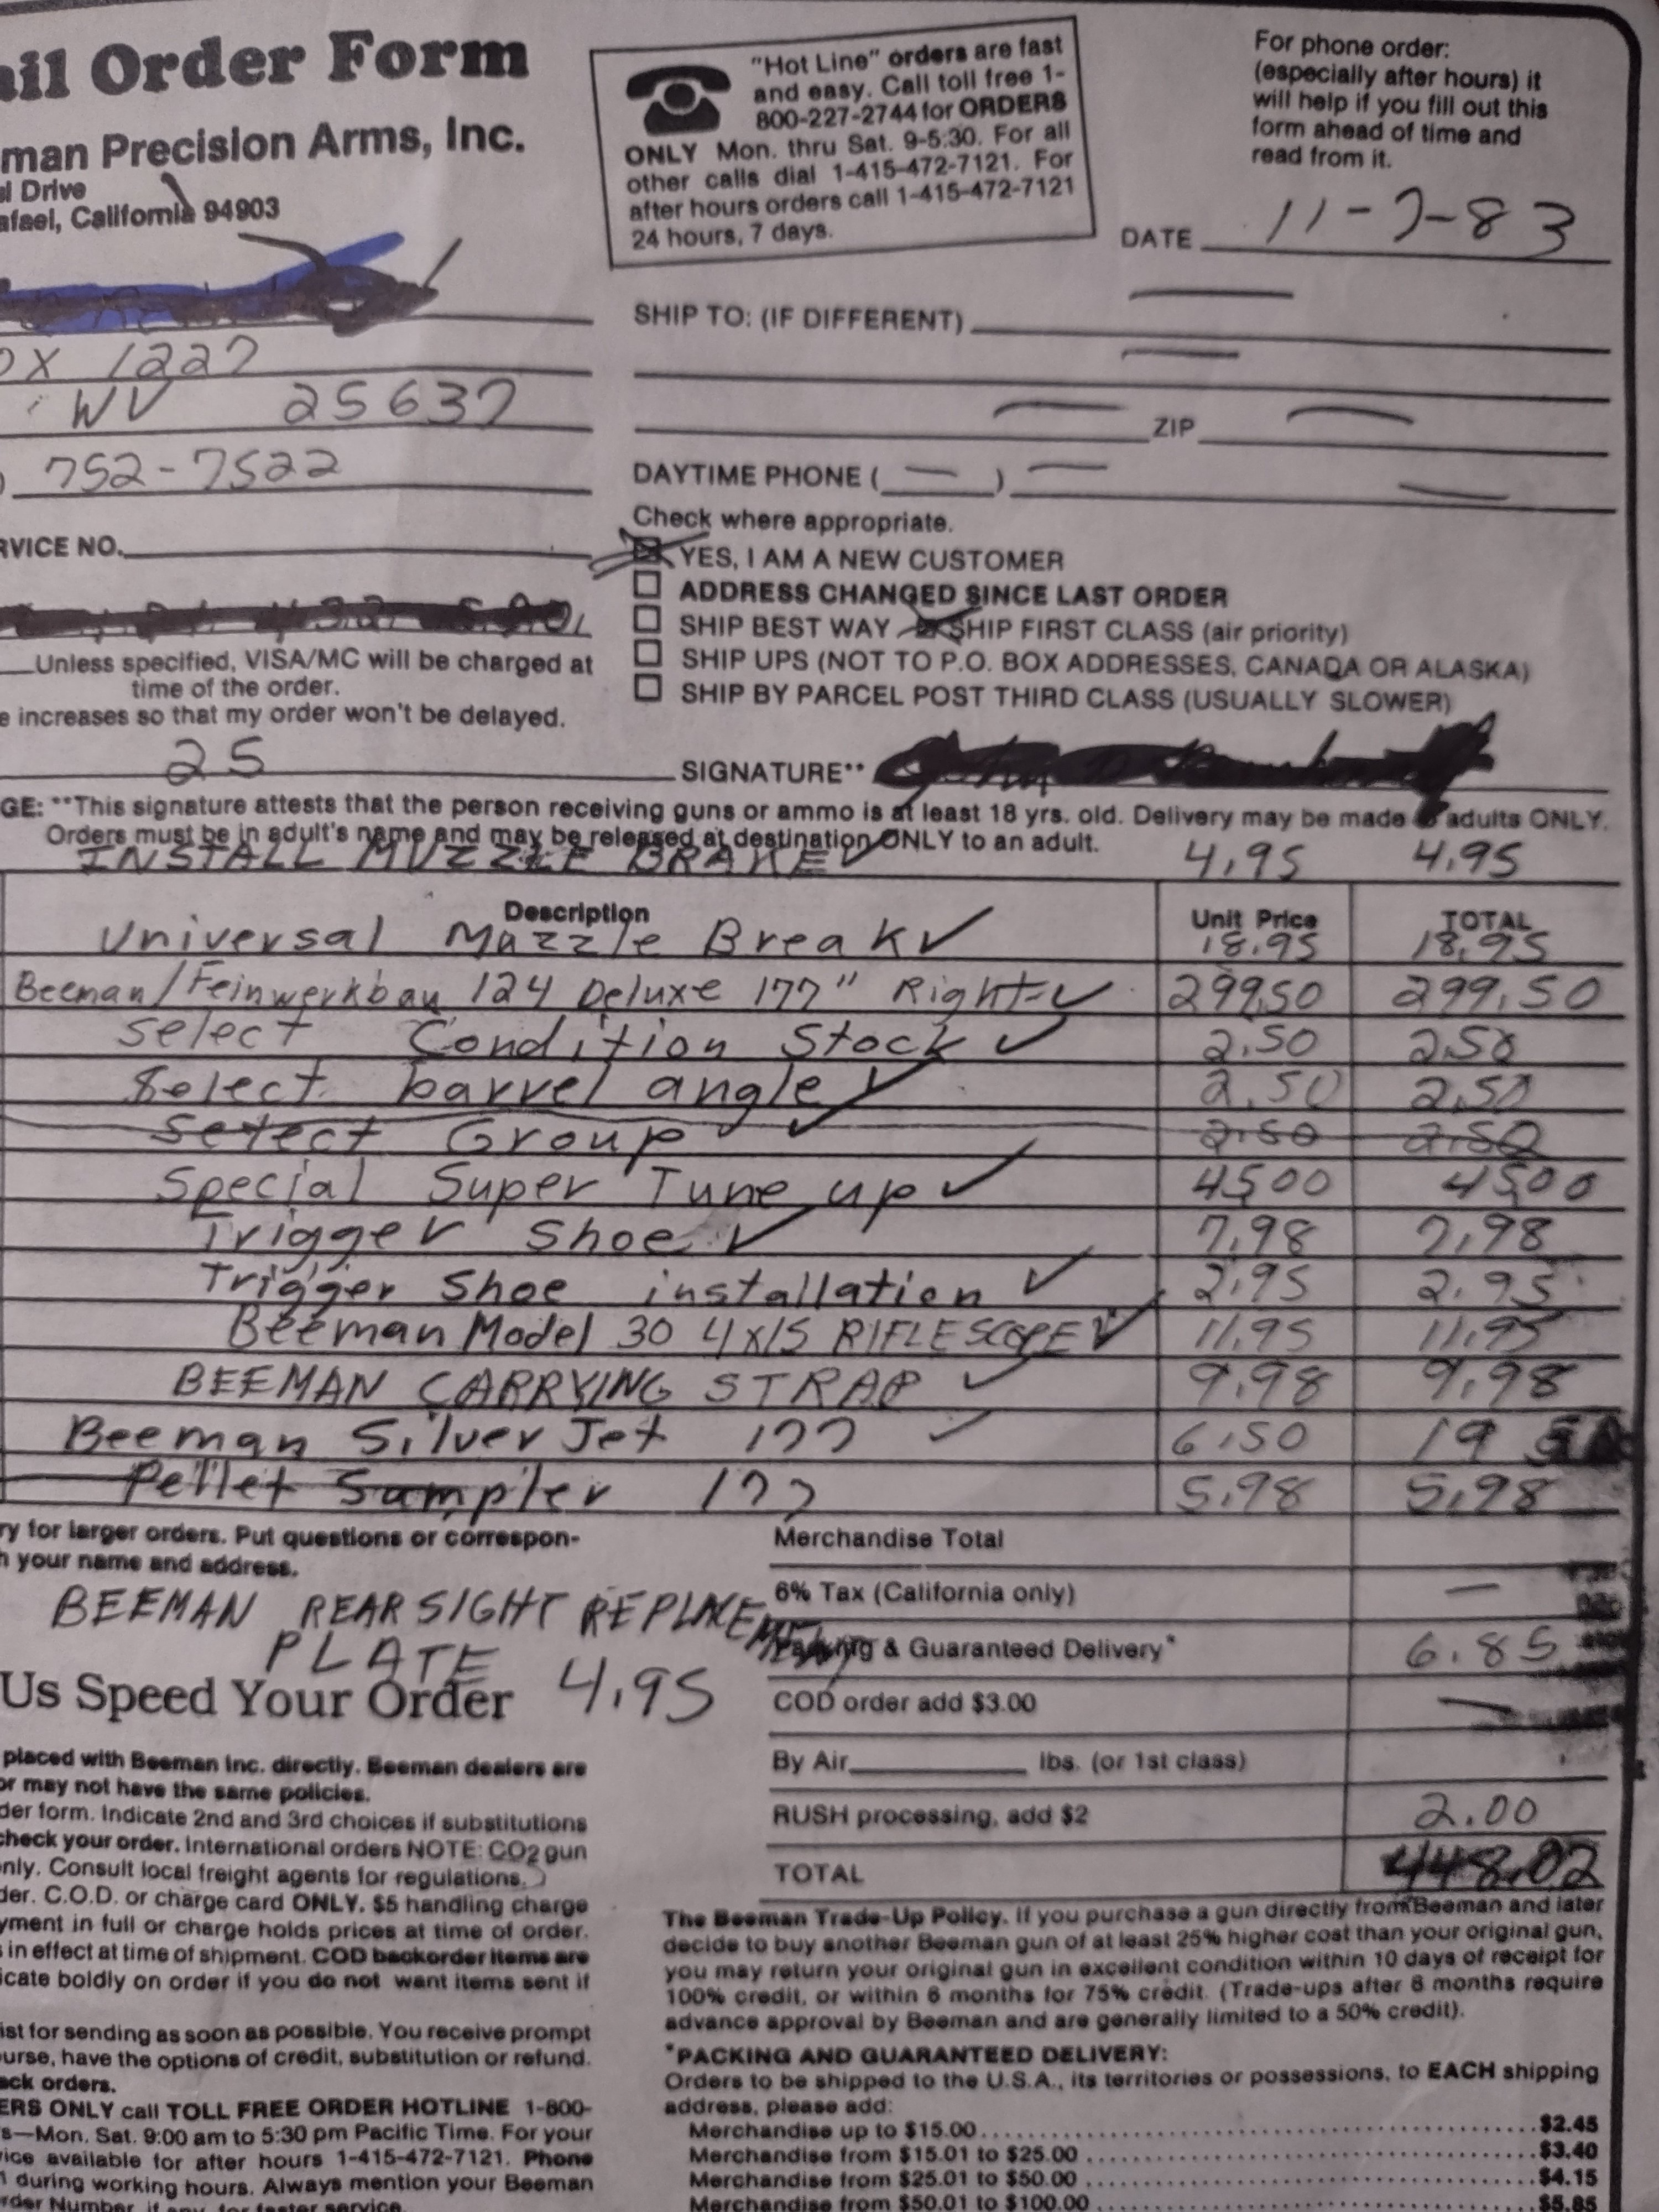 ail Order Form
man Precision Arms, Inc.
l Drive
afael, California 94903
"Hot Line" orders are fast
and easy. Call toll free 1-
800-227-2744 for ORDERS
ONLY Mon. thru Sat. 9-5:30. For all
other calls dial 1-415-472-7121. For
after hours orders call 1-415-472-7121
24 hours, 7 days.
For phone order:
(especially after hours) it
will help if you fill out this
form ahead of time and
read from it.
DATE 11-7-83
OX 1227
WV 25637
) 752-7522
RVICE NO.
Unless specified, VISA/MC will be charged at
time of the order.
e increases so that my order won't be delayed.
25
SHIP TO: (IF DIFFERENT)
ZIP
DAYTIME PHONE ( — ) —
Check where appropriate.
YES, I AM A NEW CUSTOMER
ADDRESS CHANGED SINCE LAST ORDER
SHIP BEST WAY SHIP FIRST CLASS (air priority)
SHIP UPS (NOT TO P.O. BOX ADDRESSES, CANADA OR ALASKA)
SHIP BY PARCEL POST THIRD CLASS (USUALLY SLOWER)
SIGNATURE**
GE: **This signature attests that the person receiving guns or ammo is at least 18 yrs. old. Delivery may be made adults ONLY.
Orders must be in adult's name and may be released at destination ONLY to an adult.
INSTALL MUZZLE BRAKE ✓ 4.95 4.95
Description Unit Price TOTAL
Universal Muzzle Break ✓ 18.95 18.95
Beeman/Feinwerkbau 124 Deluxe 177" Right ✓ 299.50 299.50
Select Condition Stock ✓ 2.50 2.50
Select barrel angle ✓ 2.50 2.50
Select Group ✓ 2.50 2.50
Special Super Tune up ✓ 45.00 45.00
Trigger Shoe ✓ 7.98 7.98
Trigger Shoe installation ✓ 2.95 2.95
Beeman Model 30 4x15 RIFLESCOPE ✓ 11.95 11.95
BEEMAN CARRYING STRAP ✓ 9.98 9.98
Beeman Silver Jet 177 ✓ 6.50 19
Pellet Sampler 177 5.98 5.98
ry for larger orders. Put questions or correspon-
h your name and address.
BEEMAN REAR SIGHT REPLACEMENT
PLATE
Us Speed Your Order 4.95
Merchandise Total
6% Tax (California only) —
Packing & Guaranteed Delivery* 6.85
COD order add $3.00 —
By Air lbs. (or 1st class)
RUSH processing, add $2 2.00
TOTAL 448.02
placed with Beeman Inc. directly. Beeman dealers are
or may not have the same policies.
der form. Indicate 2nd and 3rd choices if substitutions
check your order. International orders NOTE: CO2 gun
only. Consult local freight agents for regulations.
der. C.O.D. or charge card ONLY. $5 handling charge
yment in full or charge holds prices at time of order.
s in effect at time of shipment. COD backorder items are
icate boldly on order if you do not want items sent if
ist for sending as soon as possible. You receive prompt
urse, have the options of credit, substitution or refund.
ack orders.
ERS ONLY call TOLL FREE ORDER HOTLINE 1-800-
s—Mon. Sat. 9:00 am to 5:30 pm Pacific Time. For your
vice available for after hours 1-415-472-7121. Phone
during working hours. Always mention your Beeman
rder Number, if any, for faster service.
The Beeman Trade-Up Policy. If you purchase a gun directly from Beeman and later
decide to buy another Beeman gun of at least 25% higher cost than your original gun,
you may return your original gun in excellent condition within 10 days of receipt for
100% credit, or within 6 months for 75% credit. (Trade-ups after 6 months require
advance approval by Beeman and are generally limited to a 50% credit).
*PACKING AND GUARANTEED DELIVERY:
Orders to be shipped to the U.S.A., its territories or possessions, to EACH shipping
address, please add:
Merchandise up to $15.00 $2.45
Merchandise from $15.01 to $25.00 $3.40
Merchandise from $25.01 to $50.00 $4.15
Merchandise from $50.01 to $100.00 $5.85